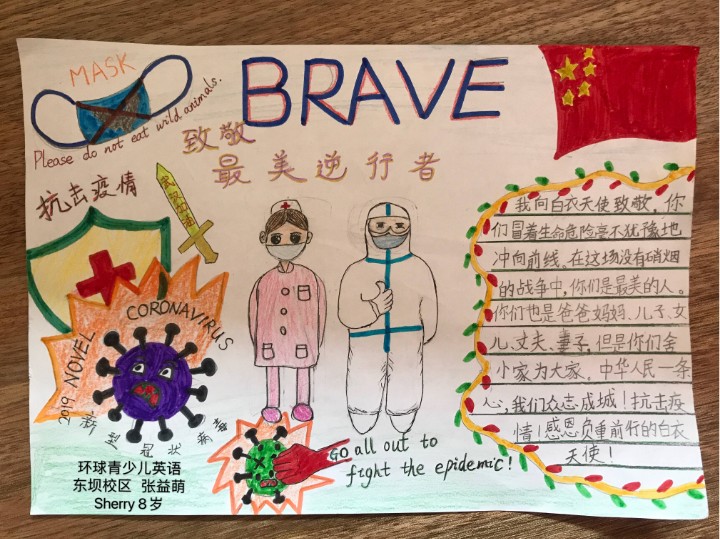 MASK
Please do not eat wild animals.
BRAVE
致敬
最美逆行者
抗击疫情
武汉加油
2019 NOVEL CORONAVIRUS
新型冠状病毒
我向白衣天使致敬、你
们冒着生命危险毫不犹豫地
冲向前线.在这场没有硝烟
的战争中,你们是最美的人。
你们也是爸爸妈妈、儿子、女
儿、丈夫、妻子,但是你们舍
小家为大家.中华人民一条
心,我们众志成城!抗击疫
情!感恩负重前行的白衣
天使!
Go all out to
fight the epidemic!
环球青少儿英语
东坝校区 张益萌
Sherry 8 岁